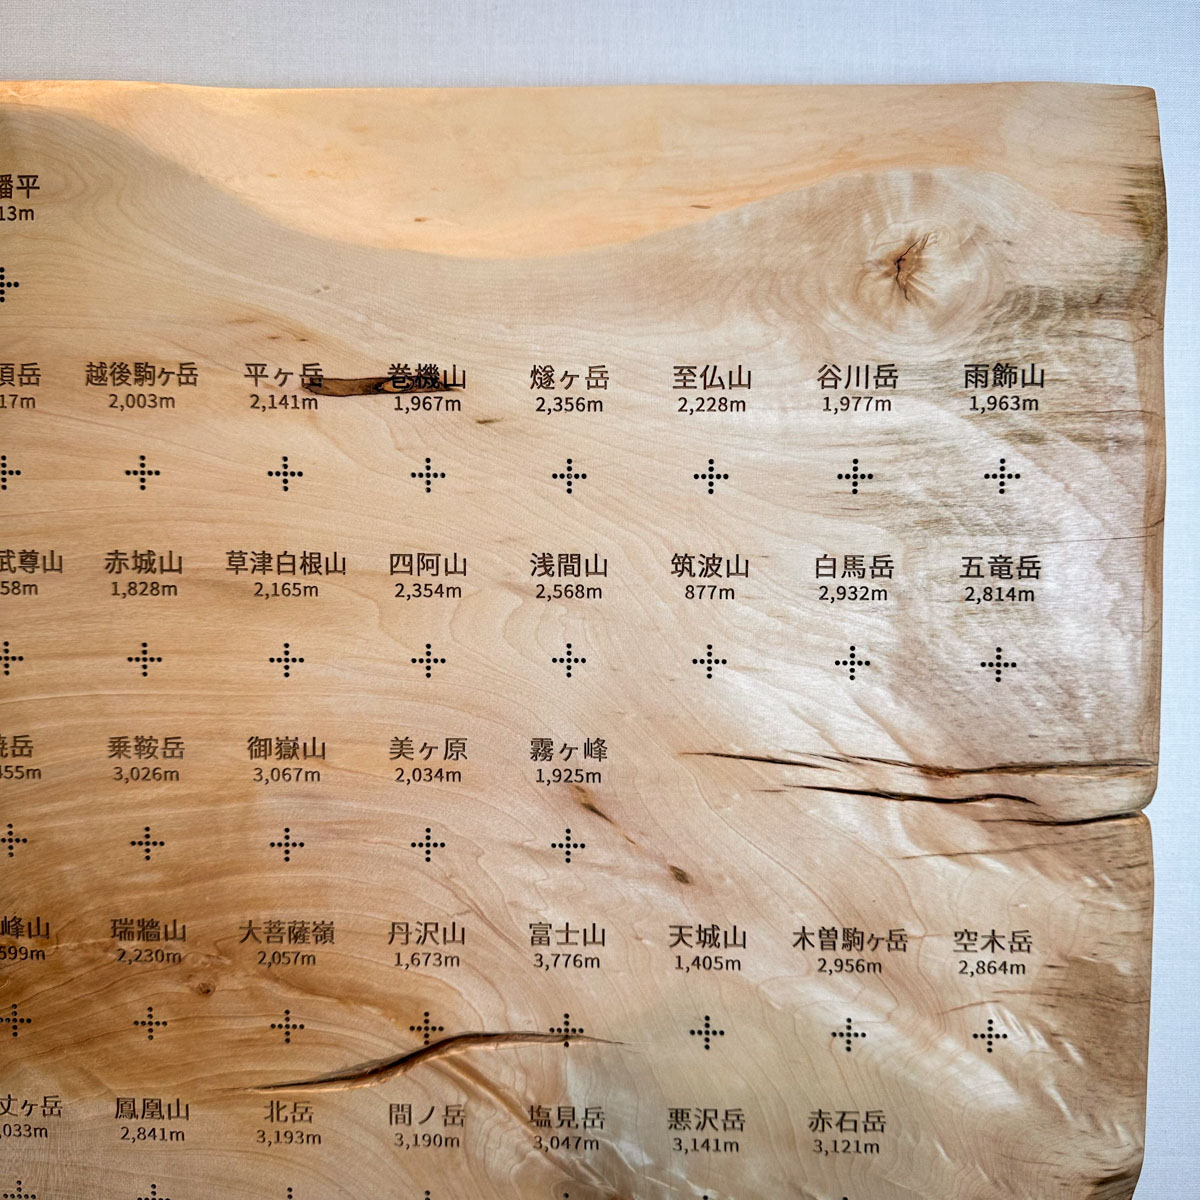 幡平
13m
須岳 越後駒ヶ岳 平ヶ岳 巻機山 燧ヶ岳 至仏山 谷川岳 雨飾山
17m 2,003m 2,141m 1,967m 2,356m 2,228m 1,977m 1,963m
武尊山 赤城山 草津白根山 四阿山 浅間山 筑波山 白馬岳 五竜岳
58m 1,828m 2,165m 2,354m 2,568m 877m 2,932m 2,814m
焼岳 乗鞍岳 御嶽山 美ヶ原 霧ヶ峰
455m 3,026m 3,067m 2,034m 1,925m
峰山 瑞牆山 大菩薩嶺 丹沢山 富士山 天城山 木曽駒ヶ岳 空木岳
599m 2,230m 2,057m 1,673m 3,776m 1,405m 2,956m 2,864m
丈ヶ岳 鳳凰山 北岳 間ノ岳 塩見岳 悪沢岳 赤石岳
,033m 2,841m 3,193m 3,190m 3,047m 3,141m 3,121m